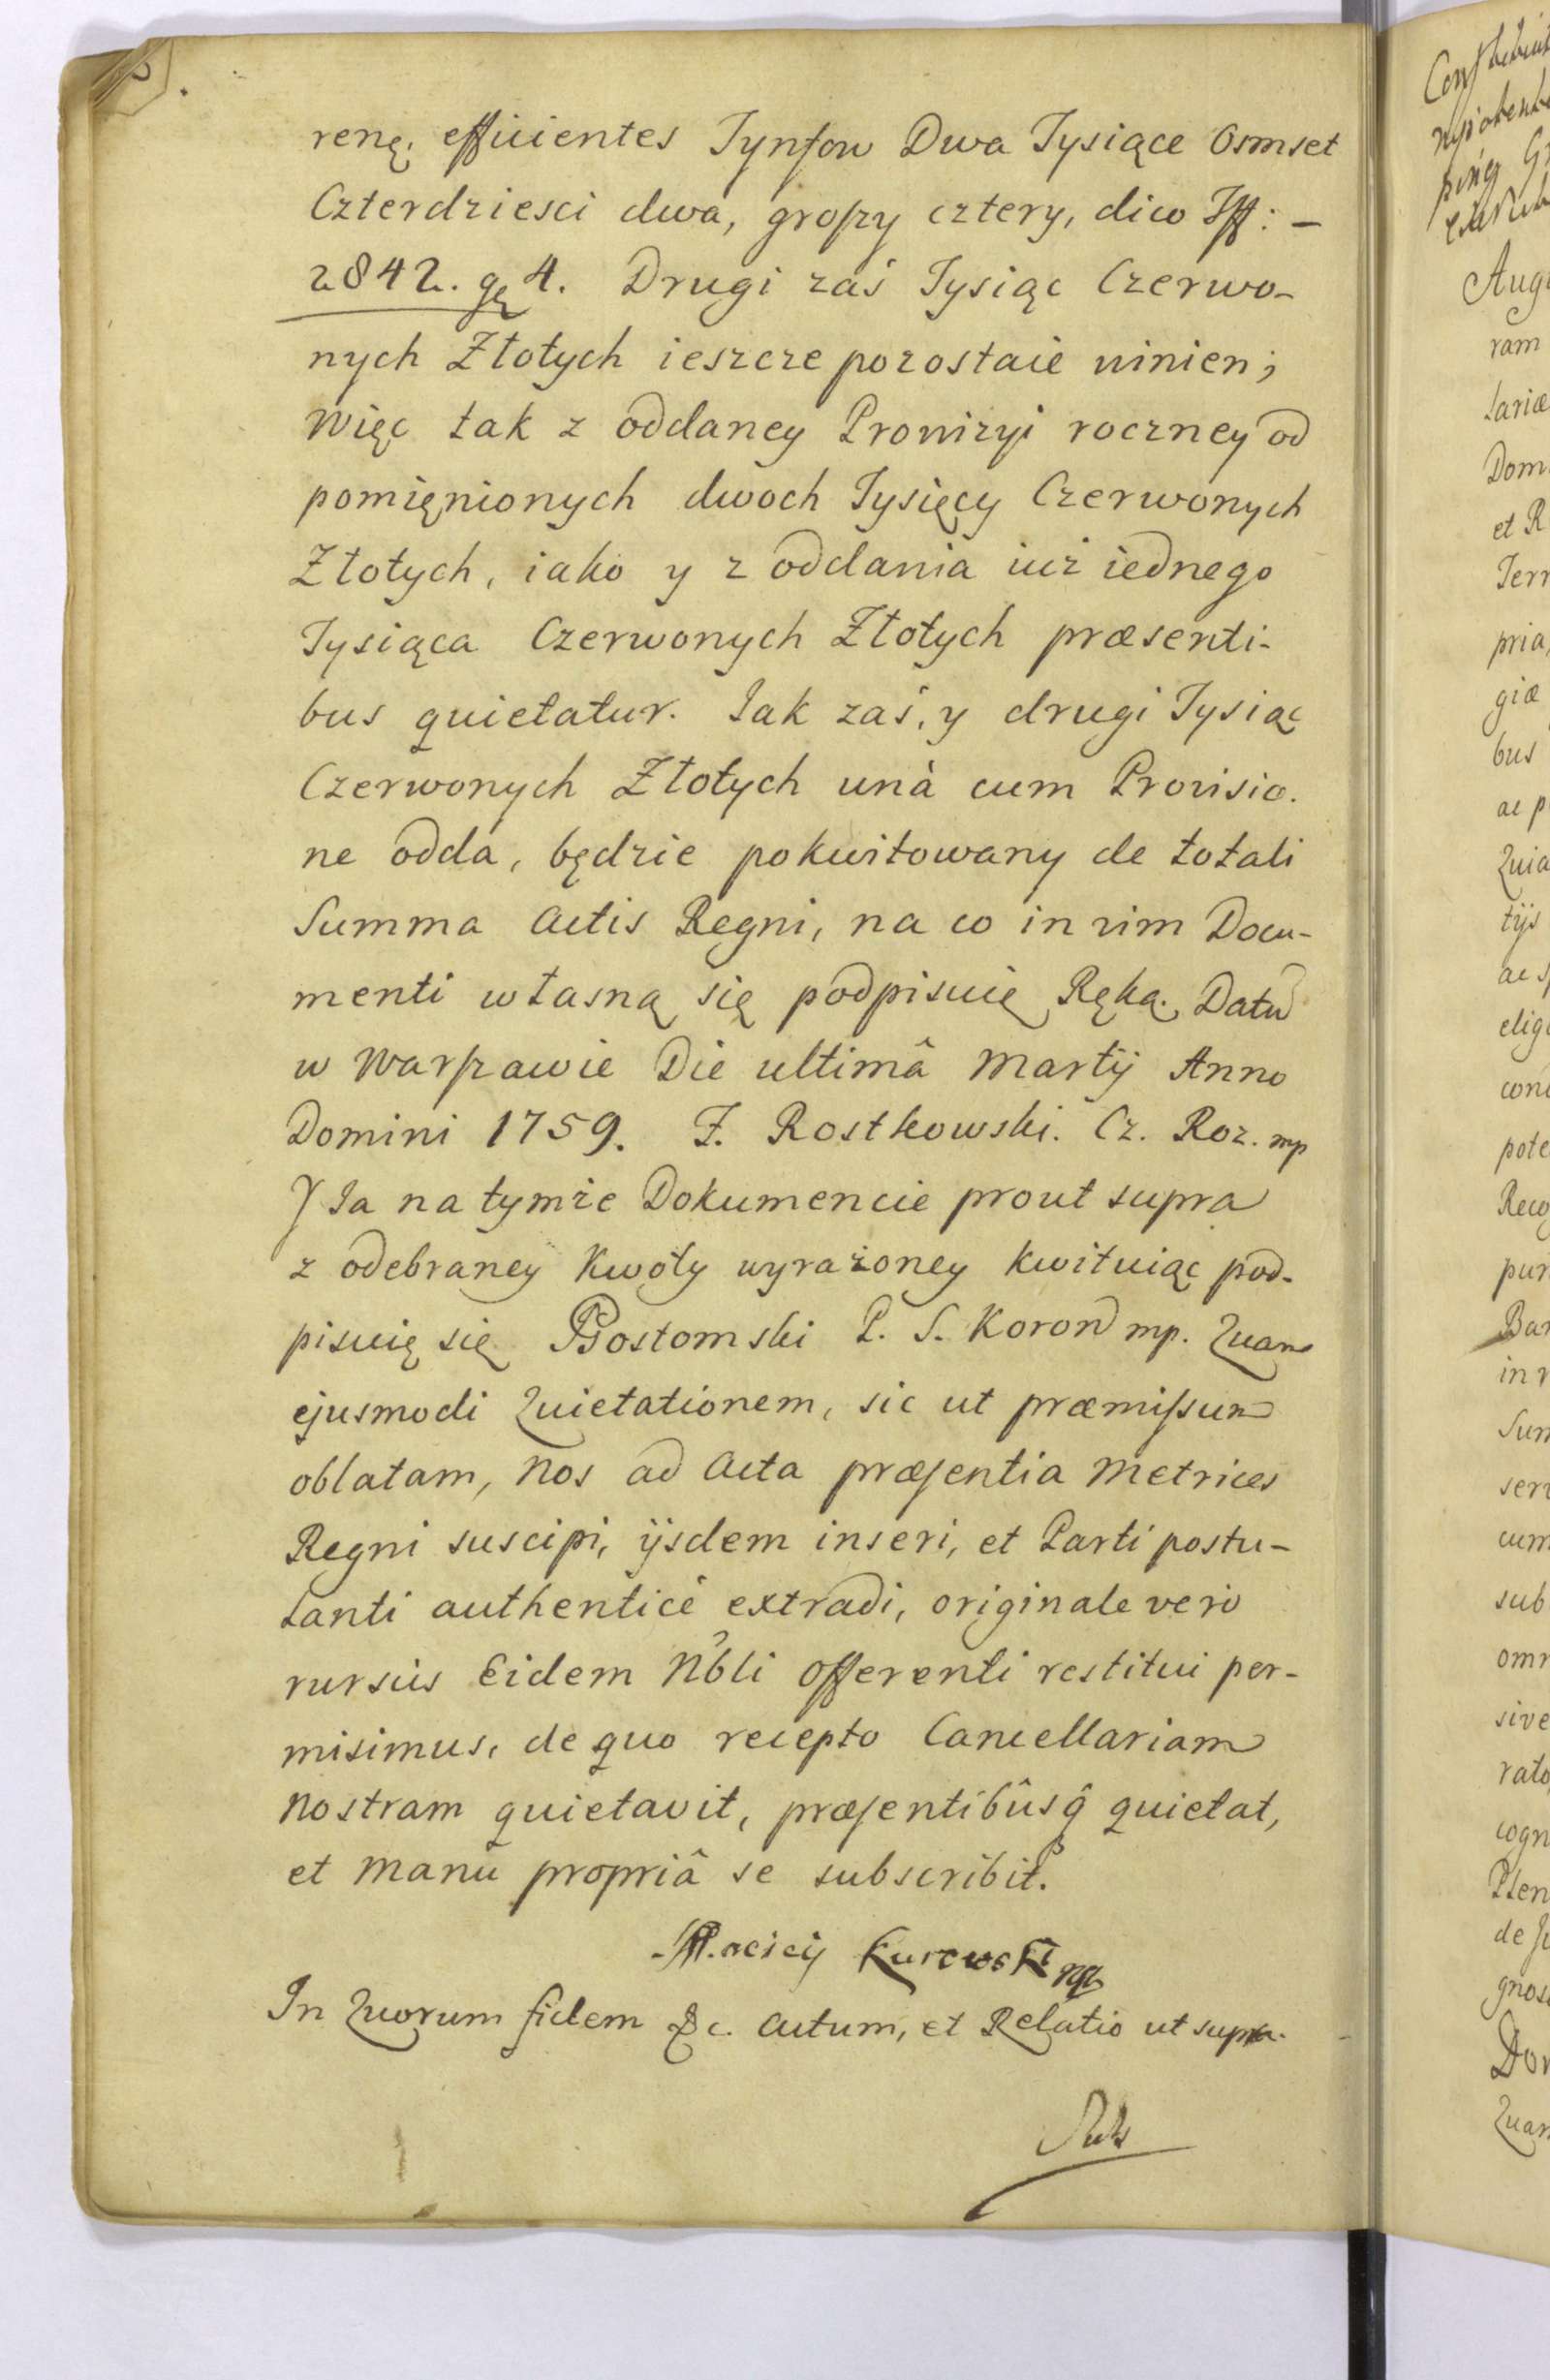 renę, efficientes Tynfow Dwa Tysiące Osmset
Czterdziesci dwa, groszy cztery, dico Tff: –
2842. gę 4. Drugi zaś Tysiąc Czerwo-
nych Złotych ieszcze pozostaie winien;
Więc tak z oddaney Prowizyi roczney od
pomięnionych dwoch Tysięcy Czerwonych
Złotych, iako y z oddania iuż iednego
Tysiąca Czerwonych Złotych præsenti-
bus quietatur. Jak zaś, y drugi Tysiąc
Czerwonych Złotych unà cum Provisio-
ne odda, będzie pokwitowany de totali
Summa Actis Regni, na co in vim Docu-
menti własną się podpisuię Ręką. Datu
w Warszawie Die ultimâ Martij Anno
Domini 1759. F. Rostkowski. Cz. Roz. mp
Y Ja na tymże Dokumencie prout supra
z odebraney Kwoty wyrażoney kwituiąc pod-
pisuię się PRostomski P. S. Koron mp. Quam
ejusmodi Quietationem, sic ut præmissum
oblatam, Nos ad Acta præsentia Metrices
Regni suscipi, ijsdem inseri, et Parti postu-
lanti authenticè extradi, originale verò
rursùs Eidem Nbli Offerenti restitui per-
misimus, de quo recepto Cancellariam
Nostram quietavit, præsentibûsq̂ quietat,
et Manû propriâ se subscribit.
Maciey Kurowski mp
In Quorum fidem &c. Actum, et Relatio ut supra.
Aug
ram
lariæ
Dom
et R
Terr
pria,
giæ
bus
ac p
Quia
tijs
ac s
elig
con
pote
Reco
pur
Bar
in v
Sum
serv
cum
sub
omn
sive
rato
cogn
Plen
de Ju
gnos
Dom
Quam